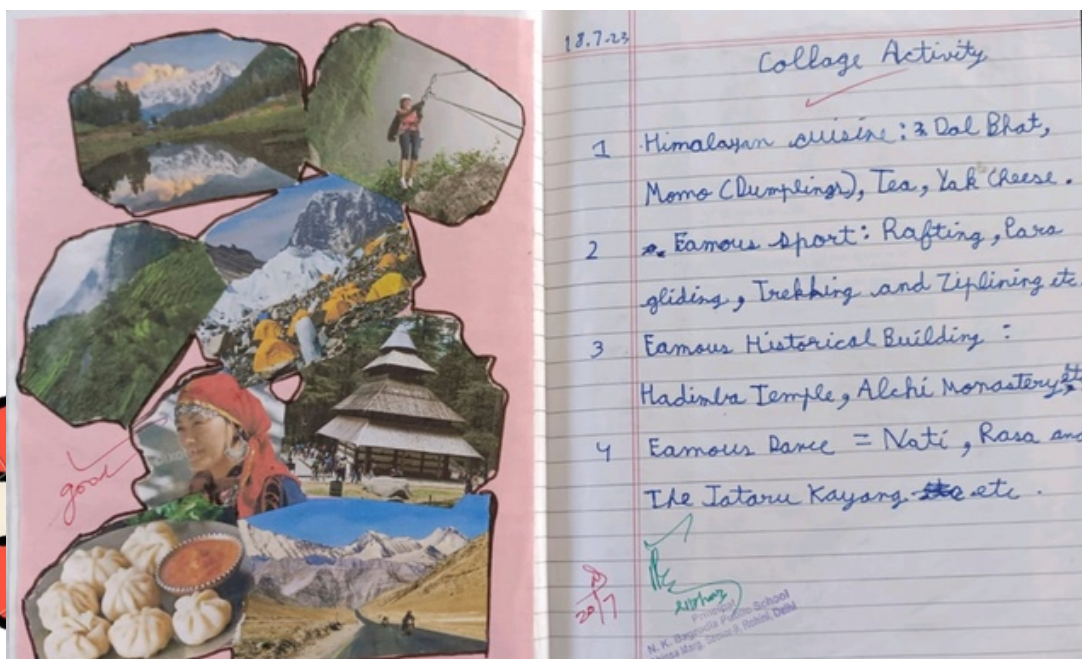 good
18.7-23
Collage Activity
1 Himalayan cuisine : Dal Bhat,
Momo (Dumplings), Tea, Yak Cheese.
2 Famous sport : Rafting, Para
gliding, Trekking and Ziplining etc
3 Famous Historical Building :
Hadimba Temple, Alchi Monastery etc
4 Famous Dance = Nati, Rasa and
The Jataru Kayang etc.
20/7
Principal
N. K. Bagrodia Public School
Marg, Sector-9, Rohini, Delhi